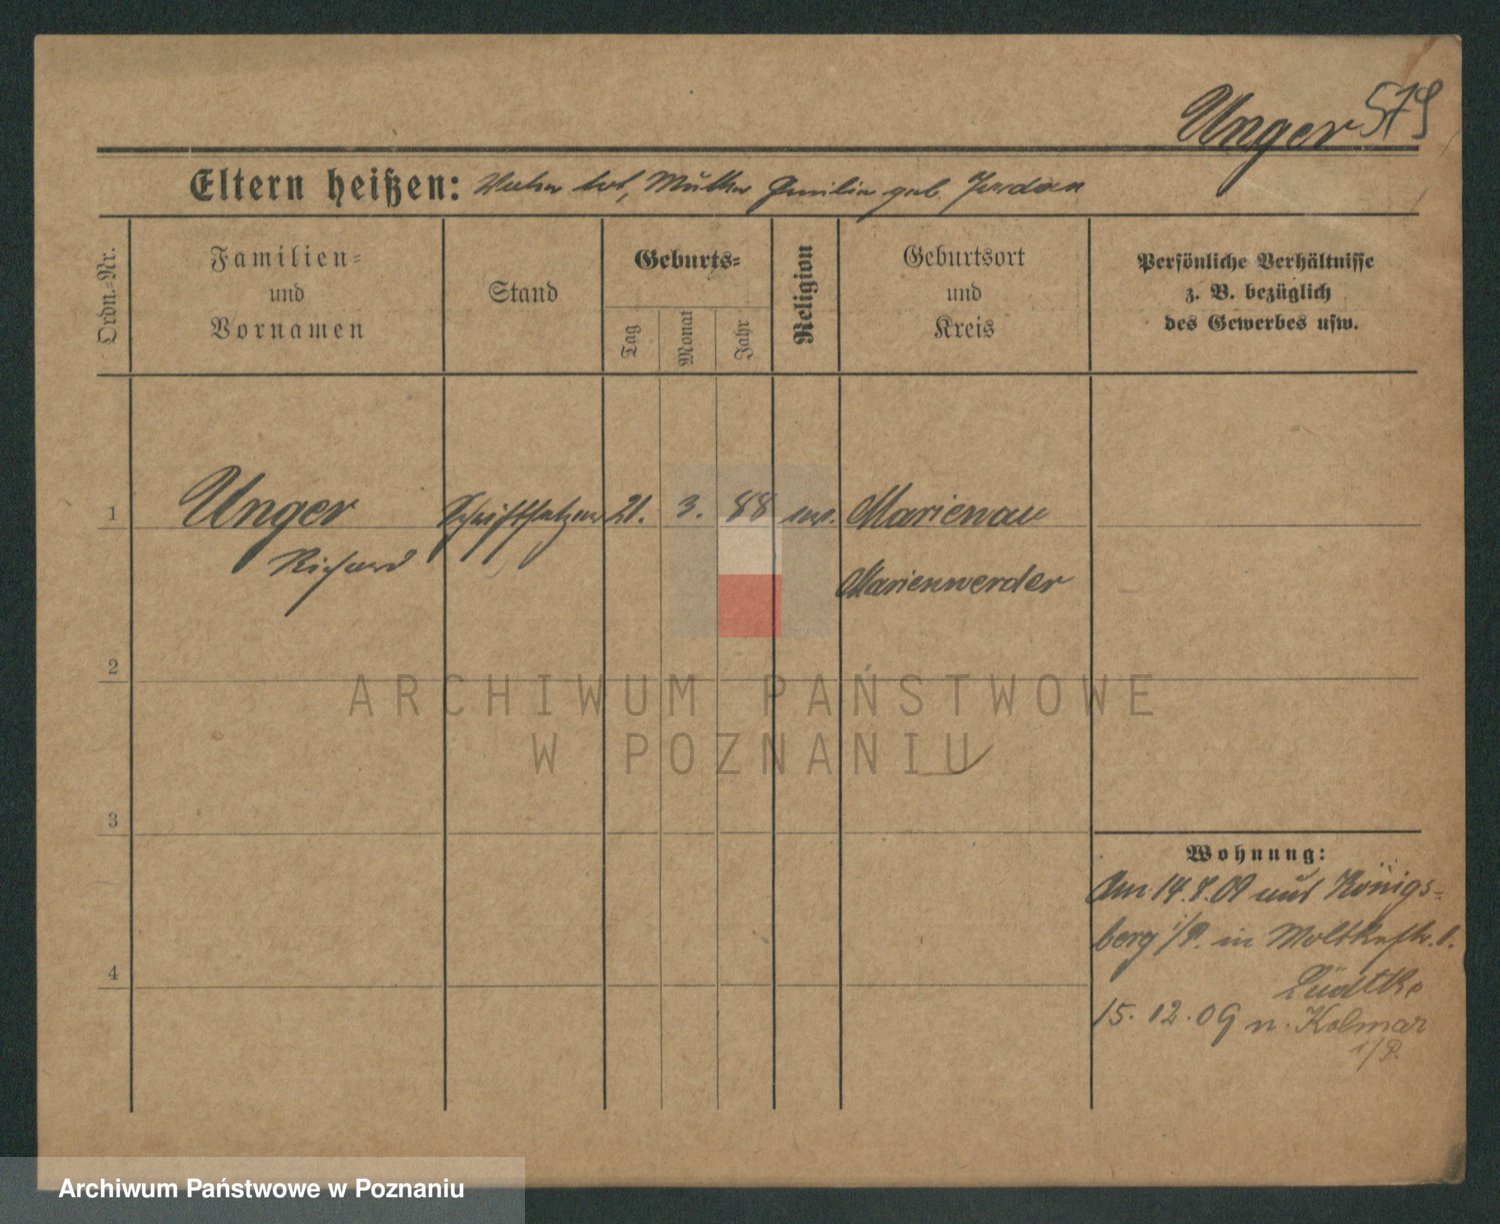 Unger 579
Eltern heißen: Vater tot, Mutter Emilie geb. Jordan
Ordn.-Nr.
Familien-
und
Vornamen
Stand
Geburts-
Tag
Monat
Jahr
Religion
Geburtsort
und
Kreis
Persönliche Verhältnisse
z. B. bezüglich
des Gewerbes usw.
1 Unger Schriftsetzer 21. 3. 88 ev. Marienau
Richard Marienwerder
2
3
4
Wohnung:
Am 14.7.09 aus Königs-
berg i/P. in Moltkestr. 1.
Lüdtke
15. 12. 09 n. Kolmar
i/P.
ARCHIWUM PAŃSTWOWE
W POZNANIU
Archiwum Państwowe w Poznaniu